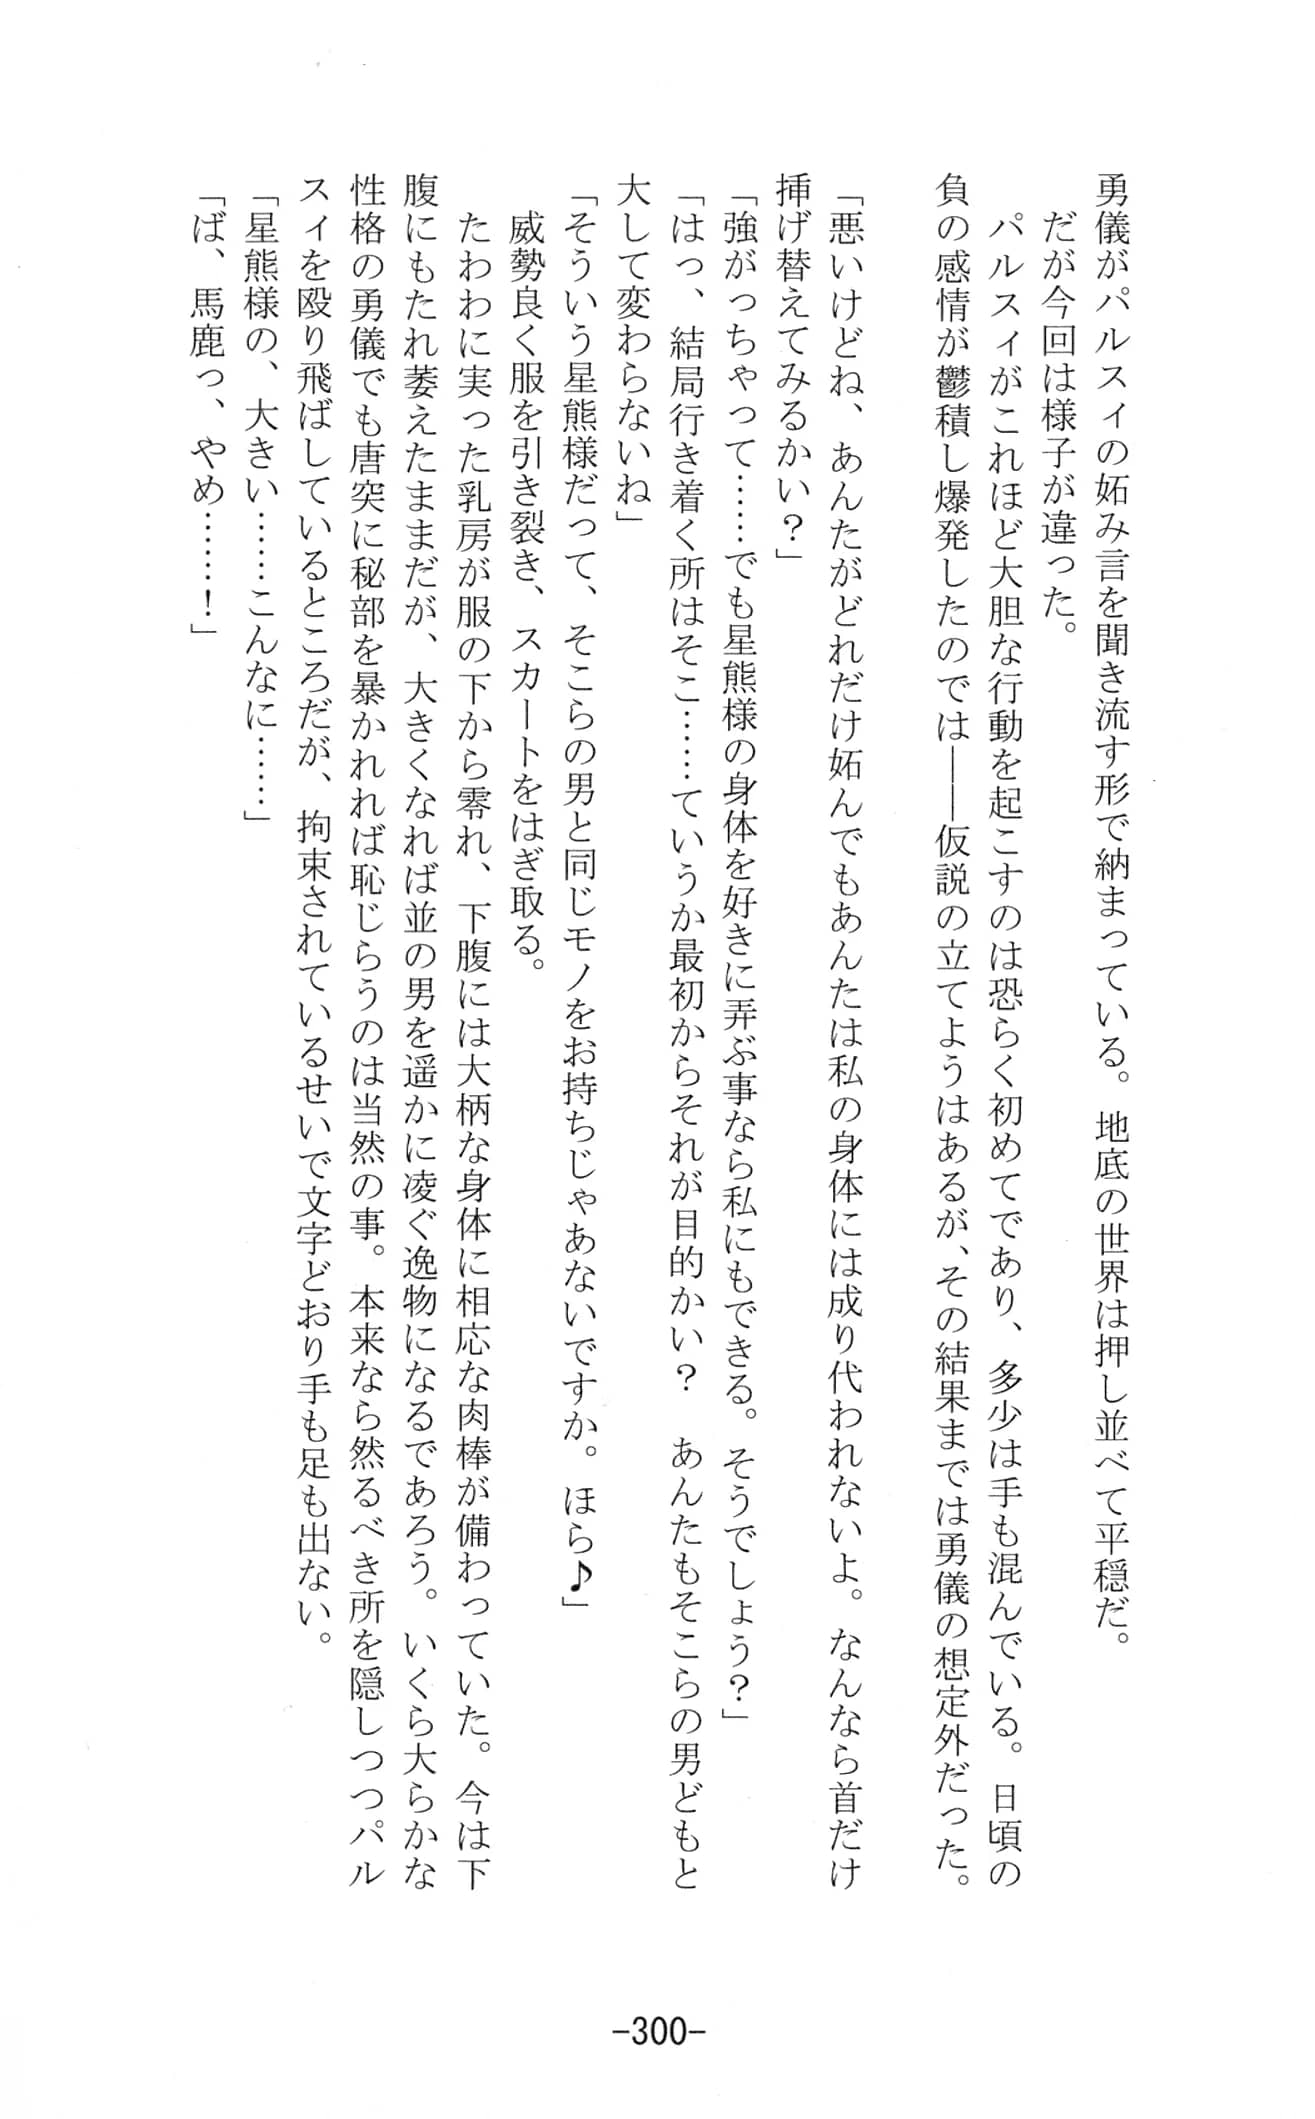 勇儀がパルスィの妬み言を聞き流す形で納まっている。地底の世界は押し並べて平穏だ。
だが今回は様子が違った。
パルスィがこれほど大胆な行動を起こすのは恐らく初めてであり、多少は手も混んでいる。日頃の
負の感情が鬱積し爆発したのでは――仮説の立てようはあるが、その結果までは勇儀の想定外だった。
「悪いけどね、あんたがどれだけ妬んでもあんたは私の身体には成り代われないよ。なんなら首だけ
挿げ替えてみるかい？」
「強がっちゃって……でも星熊様の身体を好きに弄ぶ事なら私にもできる。そうでしょう？」
「はっ、結局行き着く所はそこ……ていうか最初からそれが目的かい？　あんたもそこらの男どもと
大して変わらないね」
「そういう星熊様だって、そこらの男と同じモノをお持ちじゃあないですか。ほら♪」
威勢良く服を引き裂き、スカートをはぎ取る。
たわわに実った乳房が服の下から零れ、下腹には大柄な身体に相応な肉棒が備わっていた。今は下
腹にもたれ萎えたままだが、大きくなれば並の男を遥かに凌ぐ逸物になるであろう。いくら大らかな
性格の勇儀でも唐突に秘部を暴かれれば恥じらうのは当然の事。本来なら然るべき所を隠しつつパル
スィを殴り飛ばしているところだが、拘束されているせいで文字どおり手も足も出ない。
「星熊様の、大きい……こんなに……」
「ば、馬鹿っ、やめ……！」
-300-